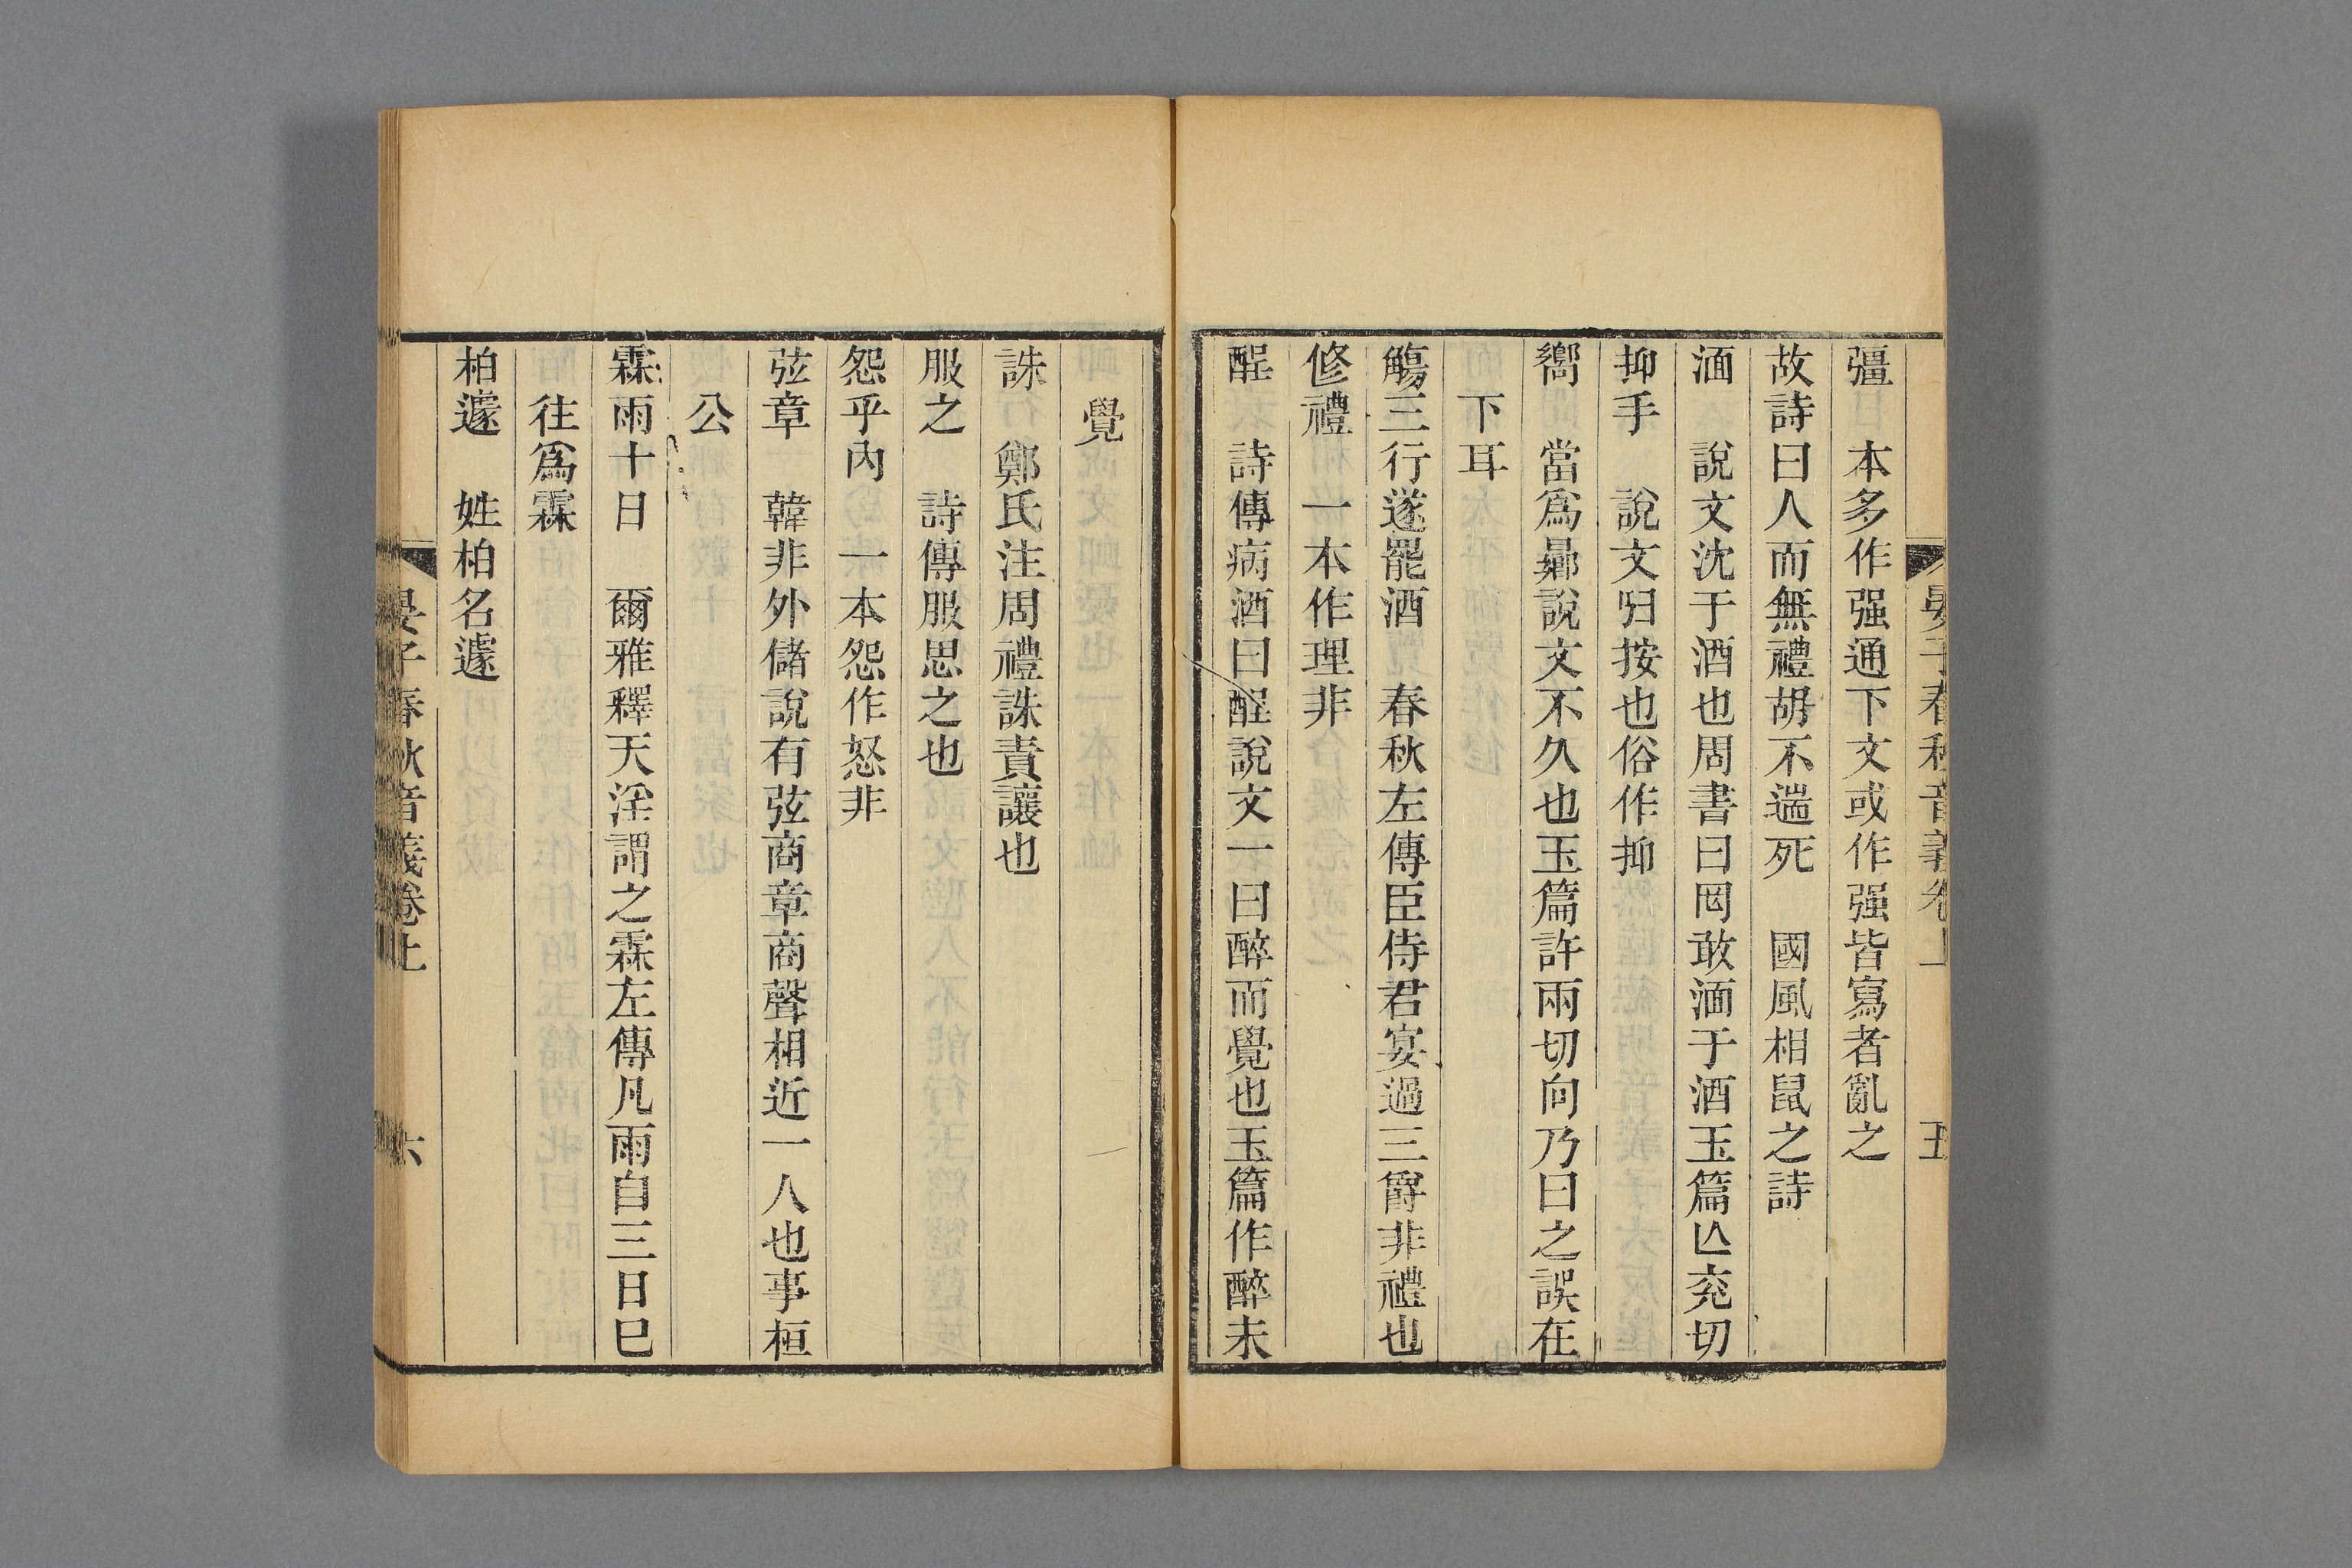 晏子春秋音義卷上　五
彊　本多作强通下文或作强皆寫者亂之
故詩曰人而無禮胡不遄死　國風相鼠之詩
湎　說文沈于酒也周書曰罔敢湎于酒玉篇亾兖切
抑手　說文归按也俗作抑
嚮　當爲曏說文不久也玉篇許兩切向乃曰之誤在
下耳
觴三行遂罷酒　春秋左傳臣侍君宴過三爵非禮也
修禮　一本作理非
酲　詩傳病酒曰酲說文一曰醉而覺也玉篇作醉未
覺
誅　鄭氏注周禮誅責讓也
服之　詩傳服思之也
怨乎內　一本怨作怒非
弦章　韓非外儲說有弦商章商聲相近一人也事桓
公
霖雨十日　爾雅釋天淫謂之霖左傳凡雨自三日巳
往爲霖
柏遽　姓柏名遽
晏子春秋音義卷上　六